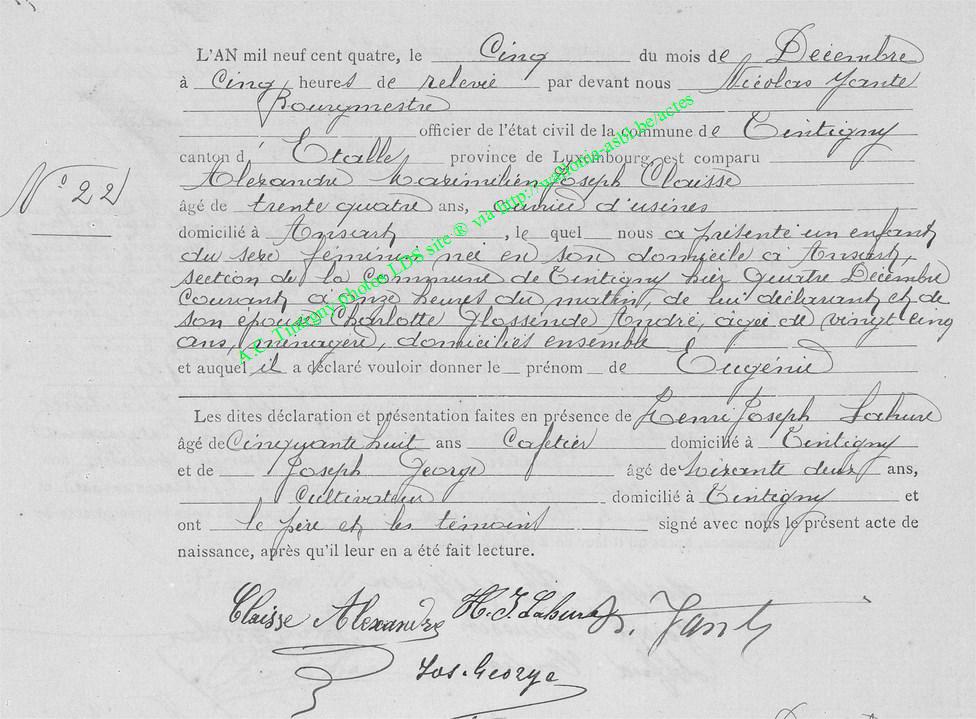 L'AN mil neuf cent quatre, le Cinq du mois de Décembre
à Cinq heures de relevée par devant nous Nicolas Jante
Bourgmestre
officier de l'état civil de la commune de Tintigny
canton d' Etalle province de Luxembourg est comparu
Alexandre Maximilien Joseph Claisse
âgé de trente quatre ans, ouvrier d'usines
domicilié à Ansart, le quel nous a présenté un enfant
du sexe féminin née en son domicile à Ansart,
section de la Commune de Tintigny hier quatre Décembre
Courant, à onze heures du matin, de lui déclarant et de
son épouse Charlotte Glossinde André, âgée de vingt cinq
ans, ménagère, domiciliés ensemble
N° 22
et auquel il a déclaré vouloir donner le prénom de Eugénie
Les dites déclaration et présentation faites en présence de Henri Joseph Lahure
âgé de Cinquante huit ans Cafetier domicilié à Tintigny
et de Joseph George âgé de soixante deux ans,
Cultivateur domicilié à Tintigny et
ont le père et les témoins signé avec nous le présent acte de
naissance, après qu'il leur en a été fait lecture.
Claisse Alexandre H. J. Lahure N. Jante
Jos. George
A.C. Tintigny photos LDS site ® via http://wallonia-asbl.be/actes